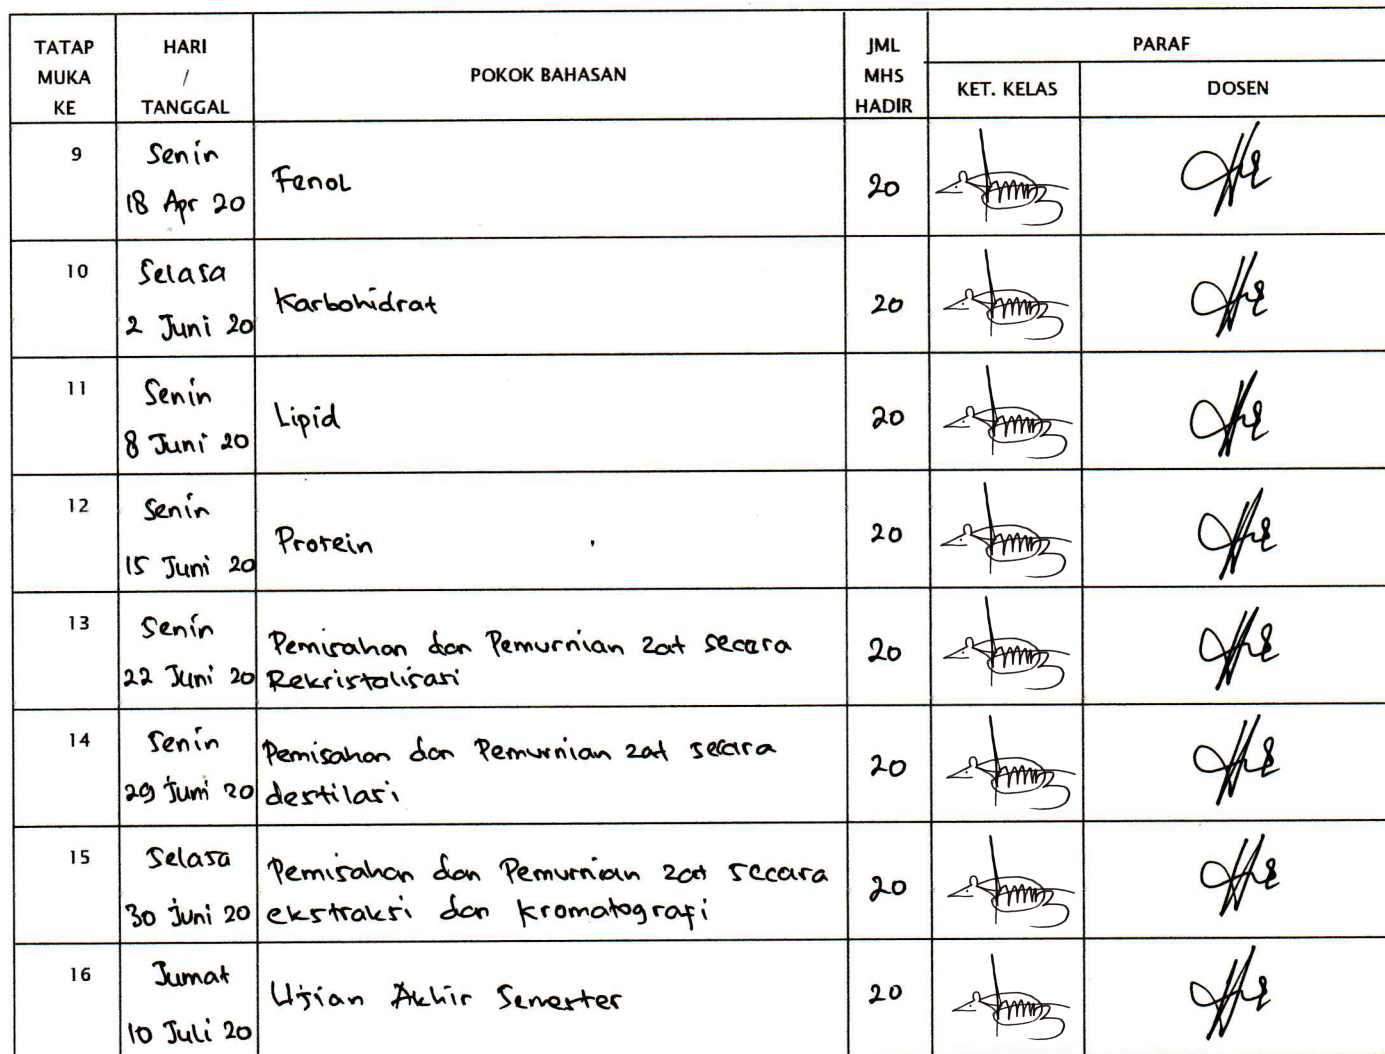 TATAP MUKA KE
HARI / TANGGAL
POKOK BAHASAN
JML MHS HADIR
PARAF
KET. KELAS
DOSEN
9
Senin
18 Apr 20
Fenol
20
10
Selasa
2 Juni 20
Karbohidrat
20
11
Senin
8 Juni 20
Lipid
20
12
Senin
15 Juni 20
Protein
20
13
Senin
22 Juni 20
Pemisahan dan Pemurnian zat secara
Rekristalisasi
20
14
Senin
29 Juni 20
Pemisahan dan Pemurnian zat secara
destilasi
20
15
Selasa
30 Juni 20
Pemisahan dan Pemurnian zat secara
ekstraksi dan kromatografi
20
16
Jumat
10 Juli 20
Ujian Akhir Semester
20